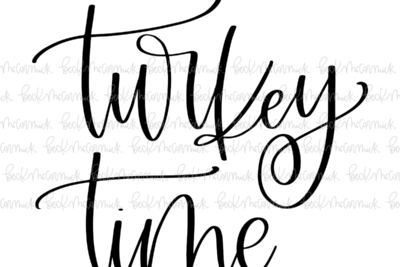 turkey
time